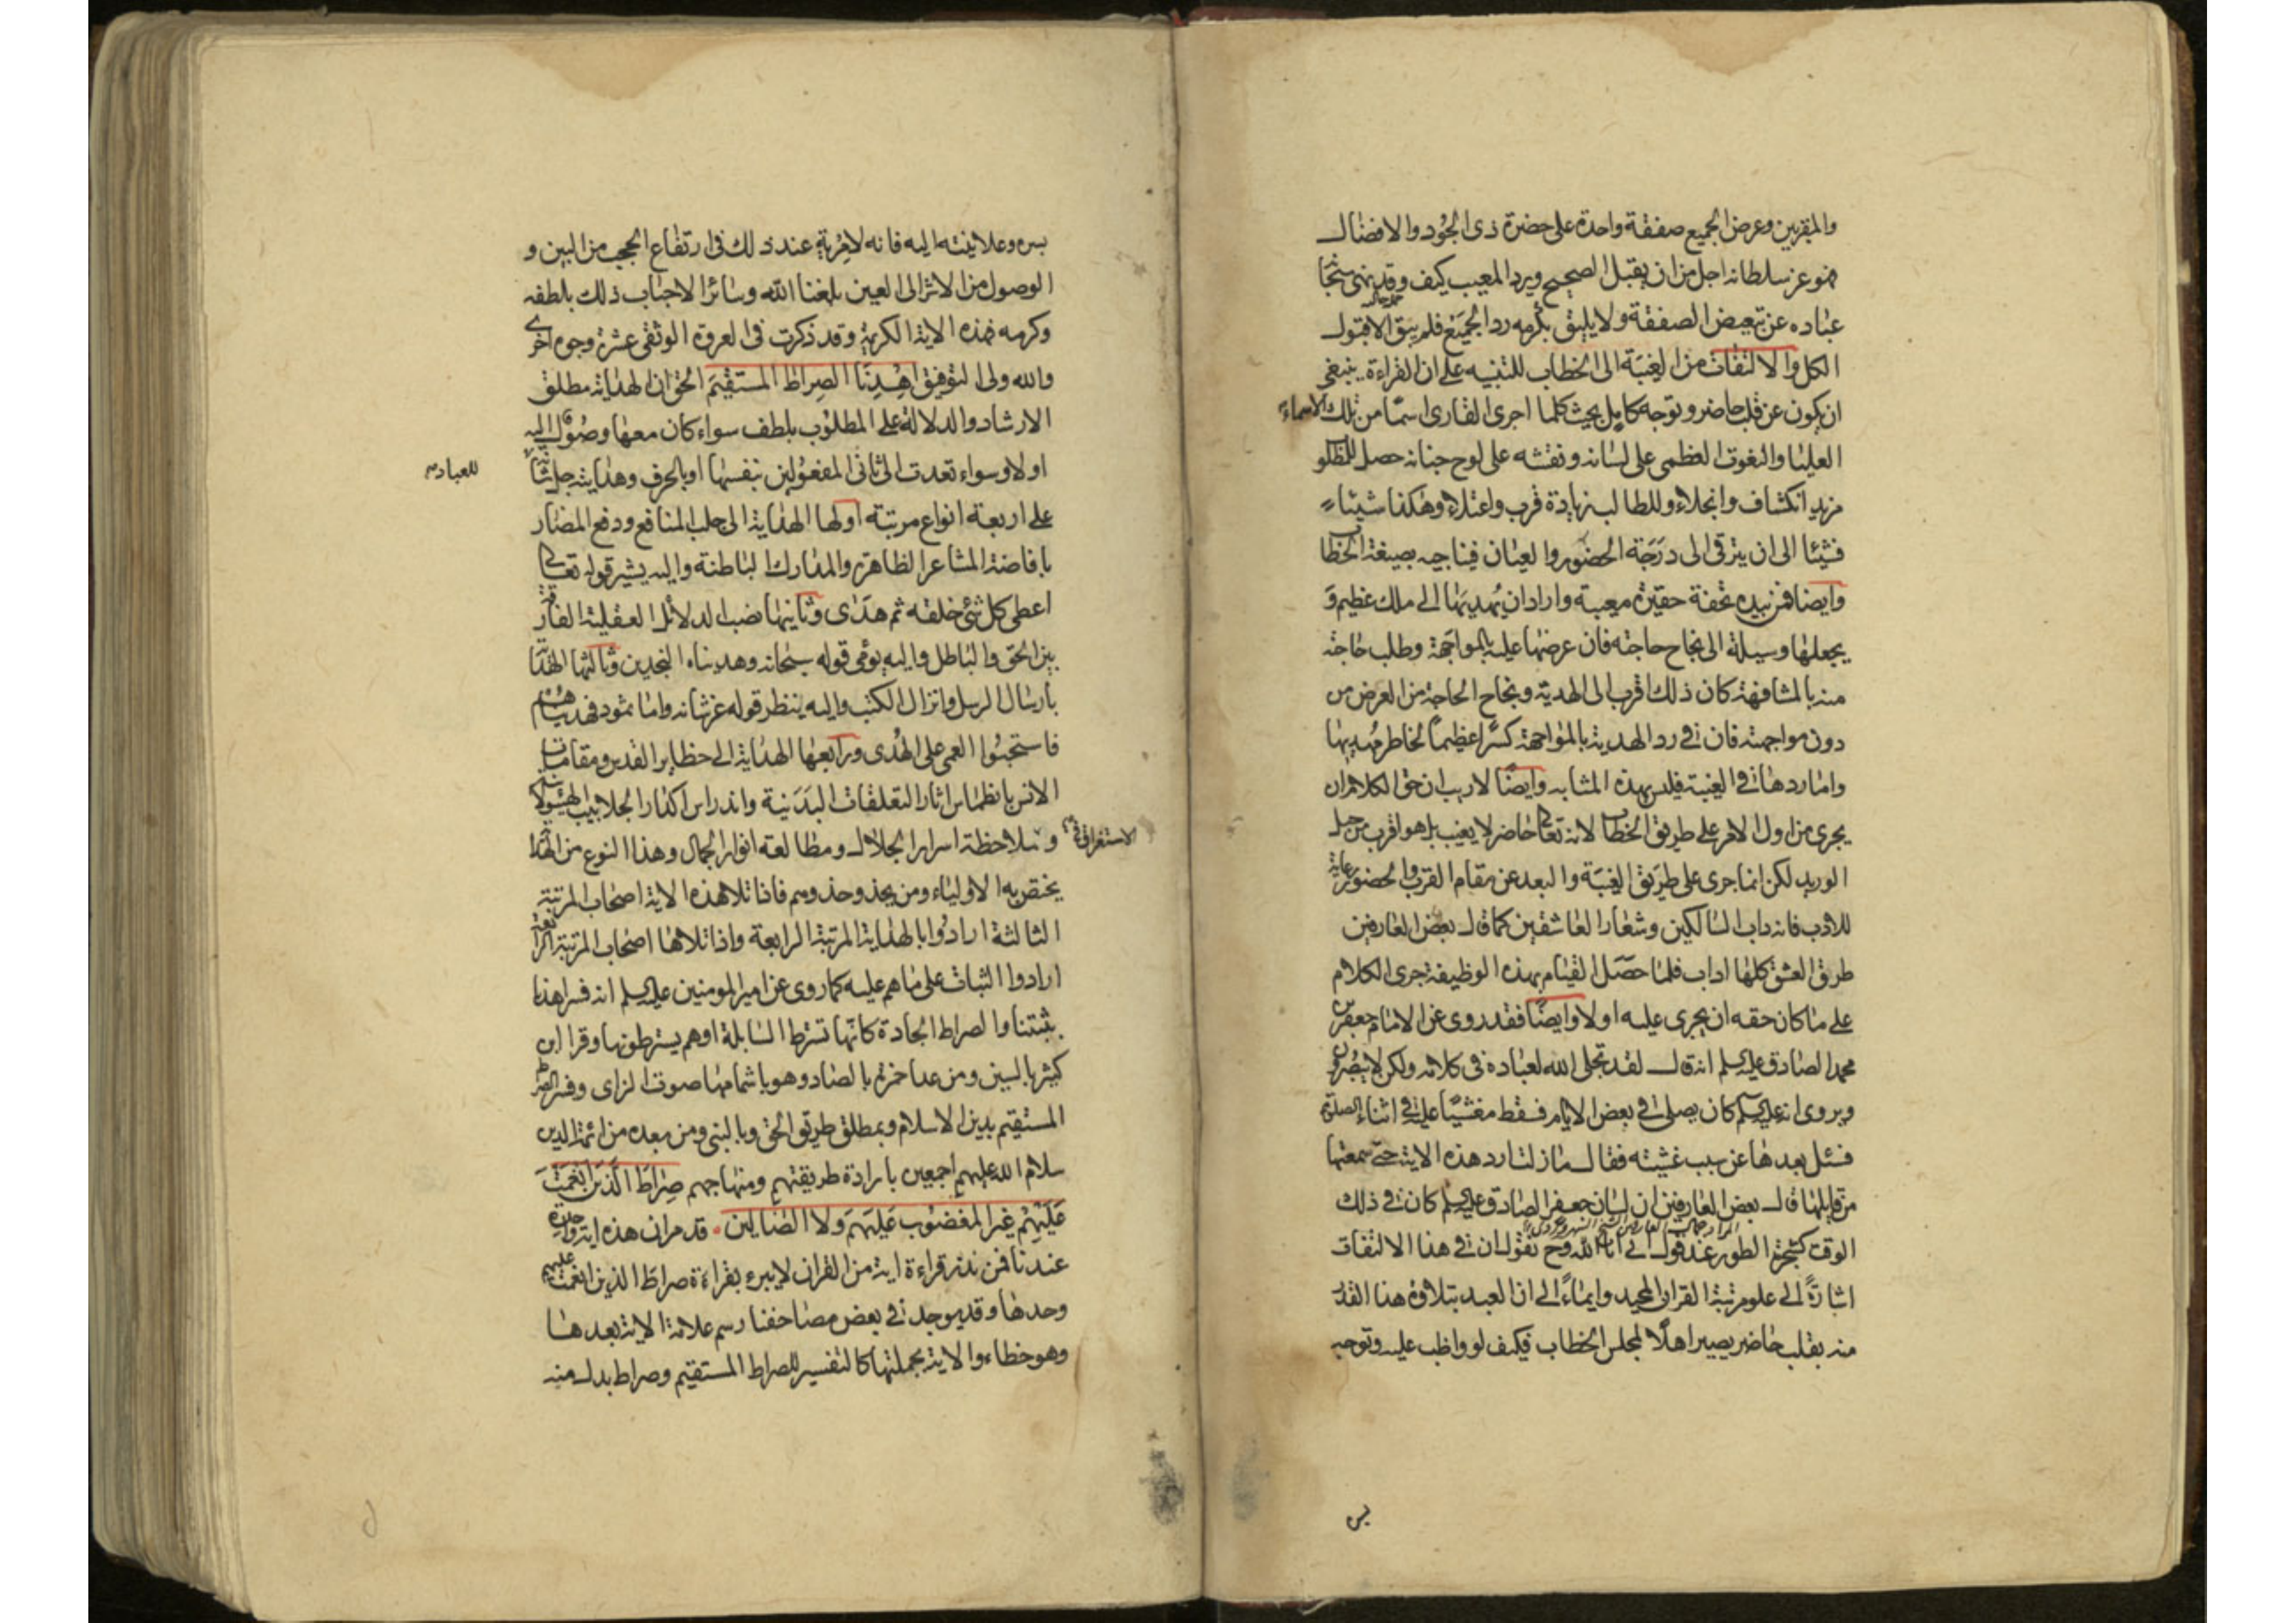 والمقربين وعرض الجميع صفقة واحدة على حضرة ذى الجود والافضال
فهو عز سلطانه اجل من ان يقبل الصحيح ويرد المعيب كيف وقد نهى سبحانه
عباده عن تبعيض الصفقة ولا يليق بكرمه رد الجميع فلم يبق الا قبول
الكل والالتفات من الغيبة الى الخطاب للتنبيه على ان القراءة ينبغى
ان يكون عن قلب حاضر وتوجه كامل بحيث كلما اجرى القارى اسما من تلك الاسماء
العليا والنعوت العظمى على لسانه ونقشه على لوح جنانه حصل للمطلوب
مزيد انكشاف وانجلاء وللطالب زيادة قرب واعتلاء وهكذا شيئا
فشيئا الى ان يترقى الى درجة الحضور والعيان فيناجيه بصيغة الخطاب
وايضا فمن بيده تحفة حقيرة معيبة واراد ان يهديها الى ملك عظيم و
يجعلها وسيلة الى نجاح حاجته فان عرضها عليه بالمواجهة وطلب حاجته
منه بالمشافهة كان ذلك اقرب الى الهدية ونجاح الحاجة من العرض من
دون مواجهته فان فى رد الهدية بالمواجهة كسرا عظيما لخاطر مهديها
واما ردها فى الغيبة فليس بهذه المشابه وايضا لا ريب ان حق الكلام ان
يجرى من اول الامر على طريق الخطاب لانه تعالى حاضر لا يغيب بل هو اقرب من حبل
الوريد لكن انما جرى على طريق الغيبة والبعد عن مقام القرب والحضور رعاية
للادب فانه داب السالكين وشعار العاشقين كما قال بعض العارفين
طرق العشق كلها اداب فلما حصل القيام بهذه الوظيفة جرى الكلام
على ما كان حقه ان يجرى عليه اولا وايضا فقد روى عن الامام جعفر بن
محمد الصادق عليه السلم انه قال لقد تجلى الله لعباده فى كلامه ولكن لا يبصرون
ويروى انه عليه السلم كان يصلى فى بعض الايام فسقط مغشيا عليه فى اثناء الصلوة
فسئل بعدها عن سبب غشيته فقال ما زلت اردد هذه الاية حتى سمعتها
من قائلها قال بعض العارفين ان لسان جعفر الصادق عليه السلم كان فى ذلك
الوقت كشجرة الطور عند قول انى انا الله وح نقول ان فى هذا الالتفات
اشارة الى علو مرتبة القران المجيد وايماء الى ان العبد بتلاوة هذا القدر
منه بقلب حاضر يصير اهلا لمجلس الخطاب فكيف لو واظب عليه وتوجه
بسره وعلانيته اليه فانه لا مرية عند ذلك فى ارتفاع الحجب من البين و
الوصول من الاثر الى العين بلغنا الله وسائر الاحباب ذلك بلطفه
وكرمه فهذه الاية الكريمة وقد ذكرت فى العروة الوثقى عشرة وجوه اخرى
والله ولى التوفيق اهدنا الصراط المستقيم الحق ان الهداية مطلق
الارشاد والدلالة على المطلوب بلطف سواء كان معها وصول اليه
اولا وسواء تعدت الى ثانى المفعولين بنفسها او بالحرف وهدايته جل شانه
للعباد
على اربعة انواع مرتبة اولها الهداية الى جلب المنافع ودفع المضار
بافاضة المشاعر الظاهرة والمدارك الباطنة واليه يشير قوله تعالى
اعطى كل شئ خلقه ثم هدى وثانيها نصب الدلائل العقلية الفارقة
بين الحق والباطل واليه يومى قوله سبحانه وهديناه النجدين وثالثها الهداية
بارسال الرسل وانزال الكتب واليه ينظر قوله عز شانه واما ثمود فهديناهم
فاستحبوا العمى على الهدى ورابعها الهداية الى حظاير القدس ومقامات
الانس بانطماس اثار التعلقات البدنية واندراس اكدار الجلابيب الهيولانية
الاستغراق فى
وملاحظة اسرار الجلال ومطالعة انوار الجمال وهذا النوع من الهداية
يختص به الاولياء ومن يحذو حذوهم فاذا تلا هذه الاية اصحاب المرتبة
الثالثة ارادوا بالهداية المرتبة الرابعة واذا تلاها اصحاب المرتبة الرابعة
ارادوا الثبات على ما هم عليه كما روى عن امير المومنين عليه السلم انه فسر اهدنا
بثبتنا والصراط الجادة كانها تسترط السابلة اوهم يسترطونها وقرا ابن
كثير بالسين ومن عدا حمزة بالصاد وهو باشمامها صوت الزاى وفسر الصراط
المستقيم بدين الاسلام وبمطلق طريق الحق وبالنبى ومن بعده من ائمة الدين
سلام الله عليهم اجمعين بارادة طريقتهم ومنهاجهم صراط الذين انعمت
عليهم غير المغضوب عليهم ولا الضالين قد مر ان هذه اية واحدة
عندنا فمن نذر قراءة اية من القران لا يبرء بقراءة صراط الذين انعمت عليهم
وحدها وقد يوجد فى بعض مصاحفنا رسم علامة الاية بعدها
وهو خطاء والاية بجملتها كالتفسير للصراط المستقيم وصراط بدل منه